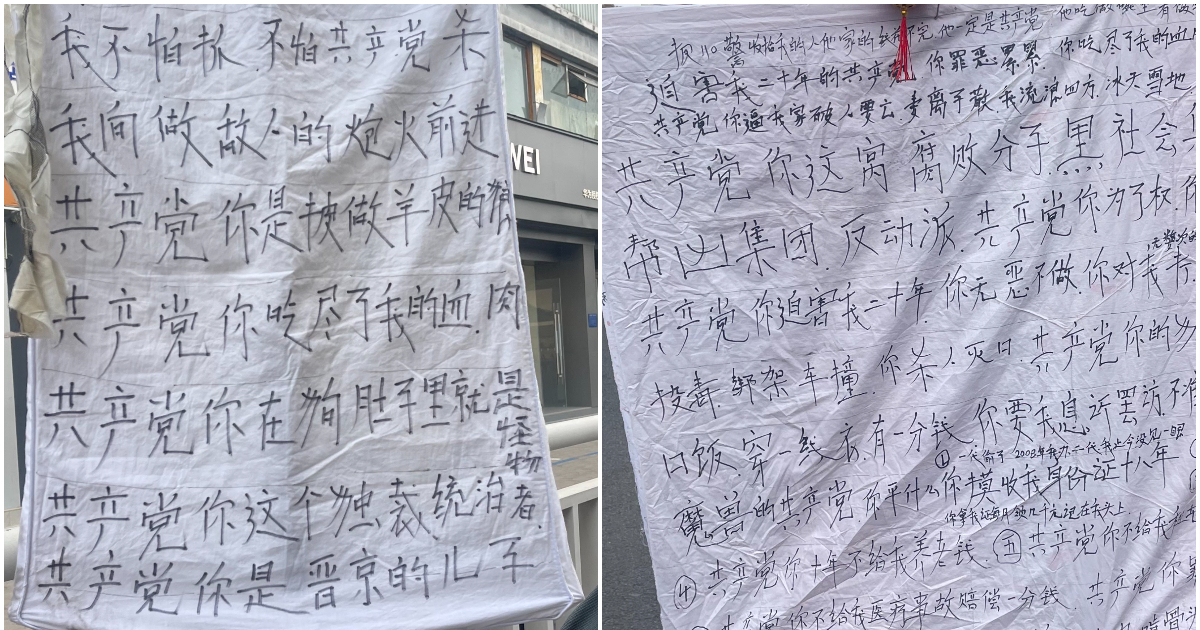 我不怕抓.不怕共产党杀
我向做敌人的炮火前进
共产党你是披做羊皮的狼
共产党你吃尽了我的血.肉
共产党你在狗肚子里就是怪物
共产党你这个独裁统治者.
共产党你是晋京的儿子
WEI
110警收拾我的人他家的
他一定是共产党
迫害我二十年的共产党 你罪恶累累.你吃尽了我的血
共产党 你逼我家破人要亡.妻离子散.我流浪四方.冰天雪地
共产党你这窝腐败分子黑社会
帮凶集团.反动派.共产党你为了权.
无数次的
共产党你迫害我二十年.你无恶不做.你对我
投毒.绑架.车撞.你杀人灭口.共产党你的
口饭.穿一线衣.有一分钱 你要我息近罢访.不
①一代偷了 2003年我办二代我止今没见一眼
魔兽的共产党你平什么你摸收我身份证十八年
④共产党你十年不给我养老钱.㊄共产党你不给我
共产党你不给我医疗事故赔偿一分钱.共产党你